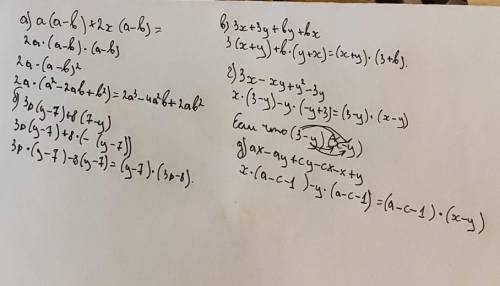 а) a(a-b)+2x(a-b)=
2a·(a-b)·(a-b)
2a·(a-b)²
2a·(a²-2ab+b²)=2a³-4a²b+2ab²
б) 3p(y-7)+8(7-y)
3p(y-7)+8·(-(y-7))
3p·(y-7)-8(y-7)=(y-7)·(3p-8).
в) 3x+3y+by+bx
3(x+y)+b·(y+x)=(x+y)·(3+b).
г) 3x-xy+y²-3y
x·(3-y)-y·(-y+3)=(3-y)·(x-y)
Если что (3-y)(x-y)
д) ax-ay+cy-cx-x+y
x·(a-c-1)-y·(a-c-1)=(a-c-1)·(x-y)